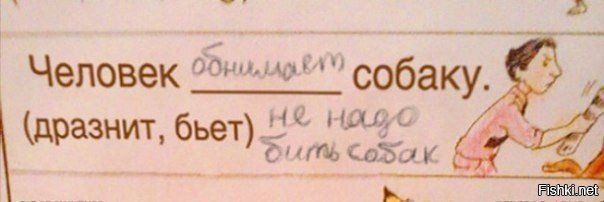 Человек обнимает собаку.
(дразнит, бьет) не надо
бить собак
Fishki.net